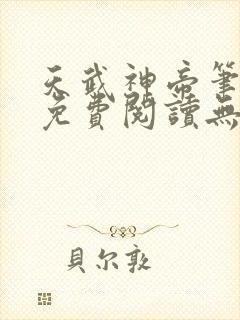 天武神帝筆
免費閱讀無
貝尔敦